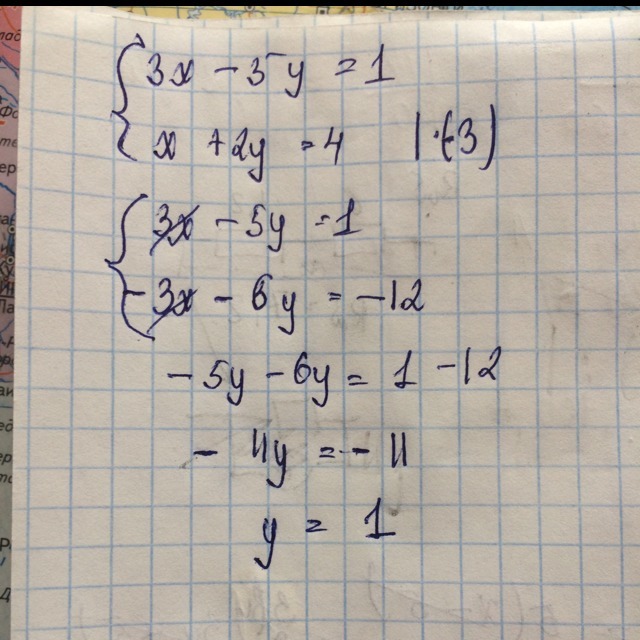 3x - 5y = 1
x + 2y = 4 | ·(-3)
3x - 5y = 1
-3x - 6y = -12
- 5y - 6y = 1 - 12
- 11y = - 11
y = 1